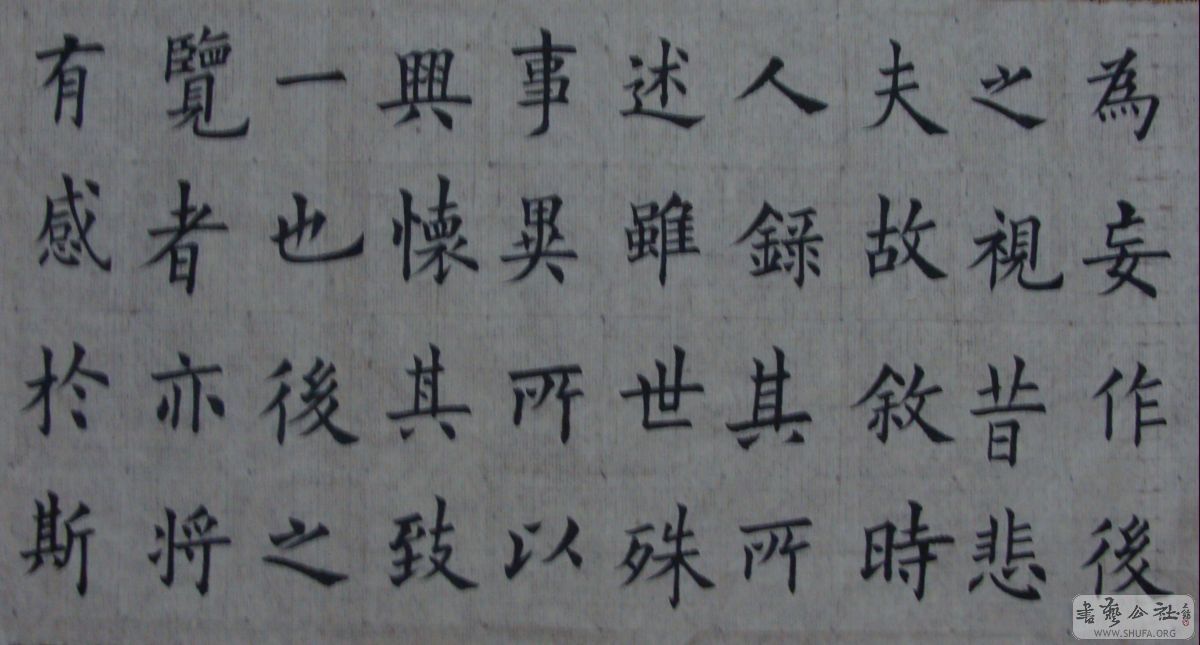 為妄作後
之視昔悲
夫故敘時
人錄其所
述雖世殊
事異所以
興懷其致
一也後之
覽者亦將
有感於斯
書藝公社
WWW.SHUFA.ORG